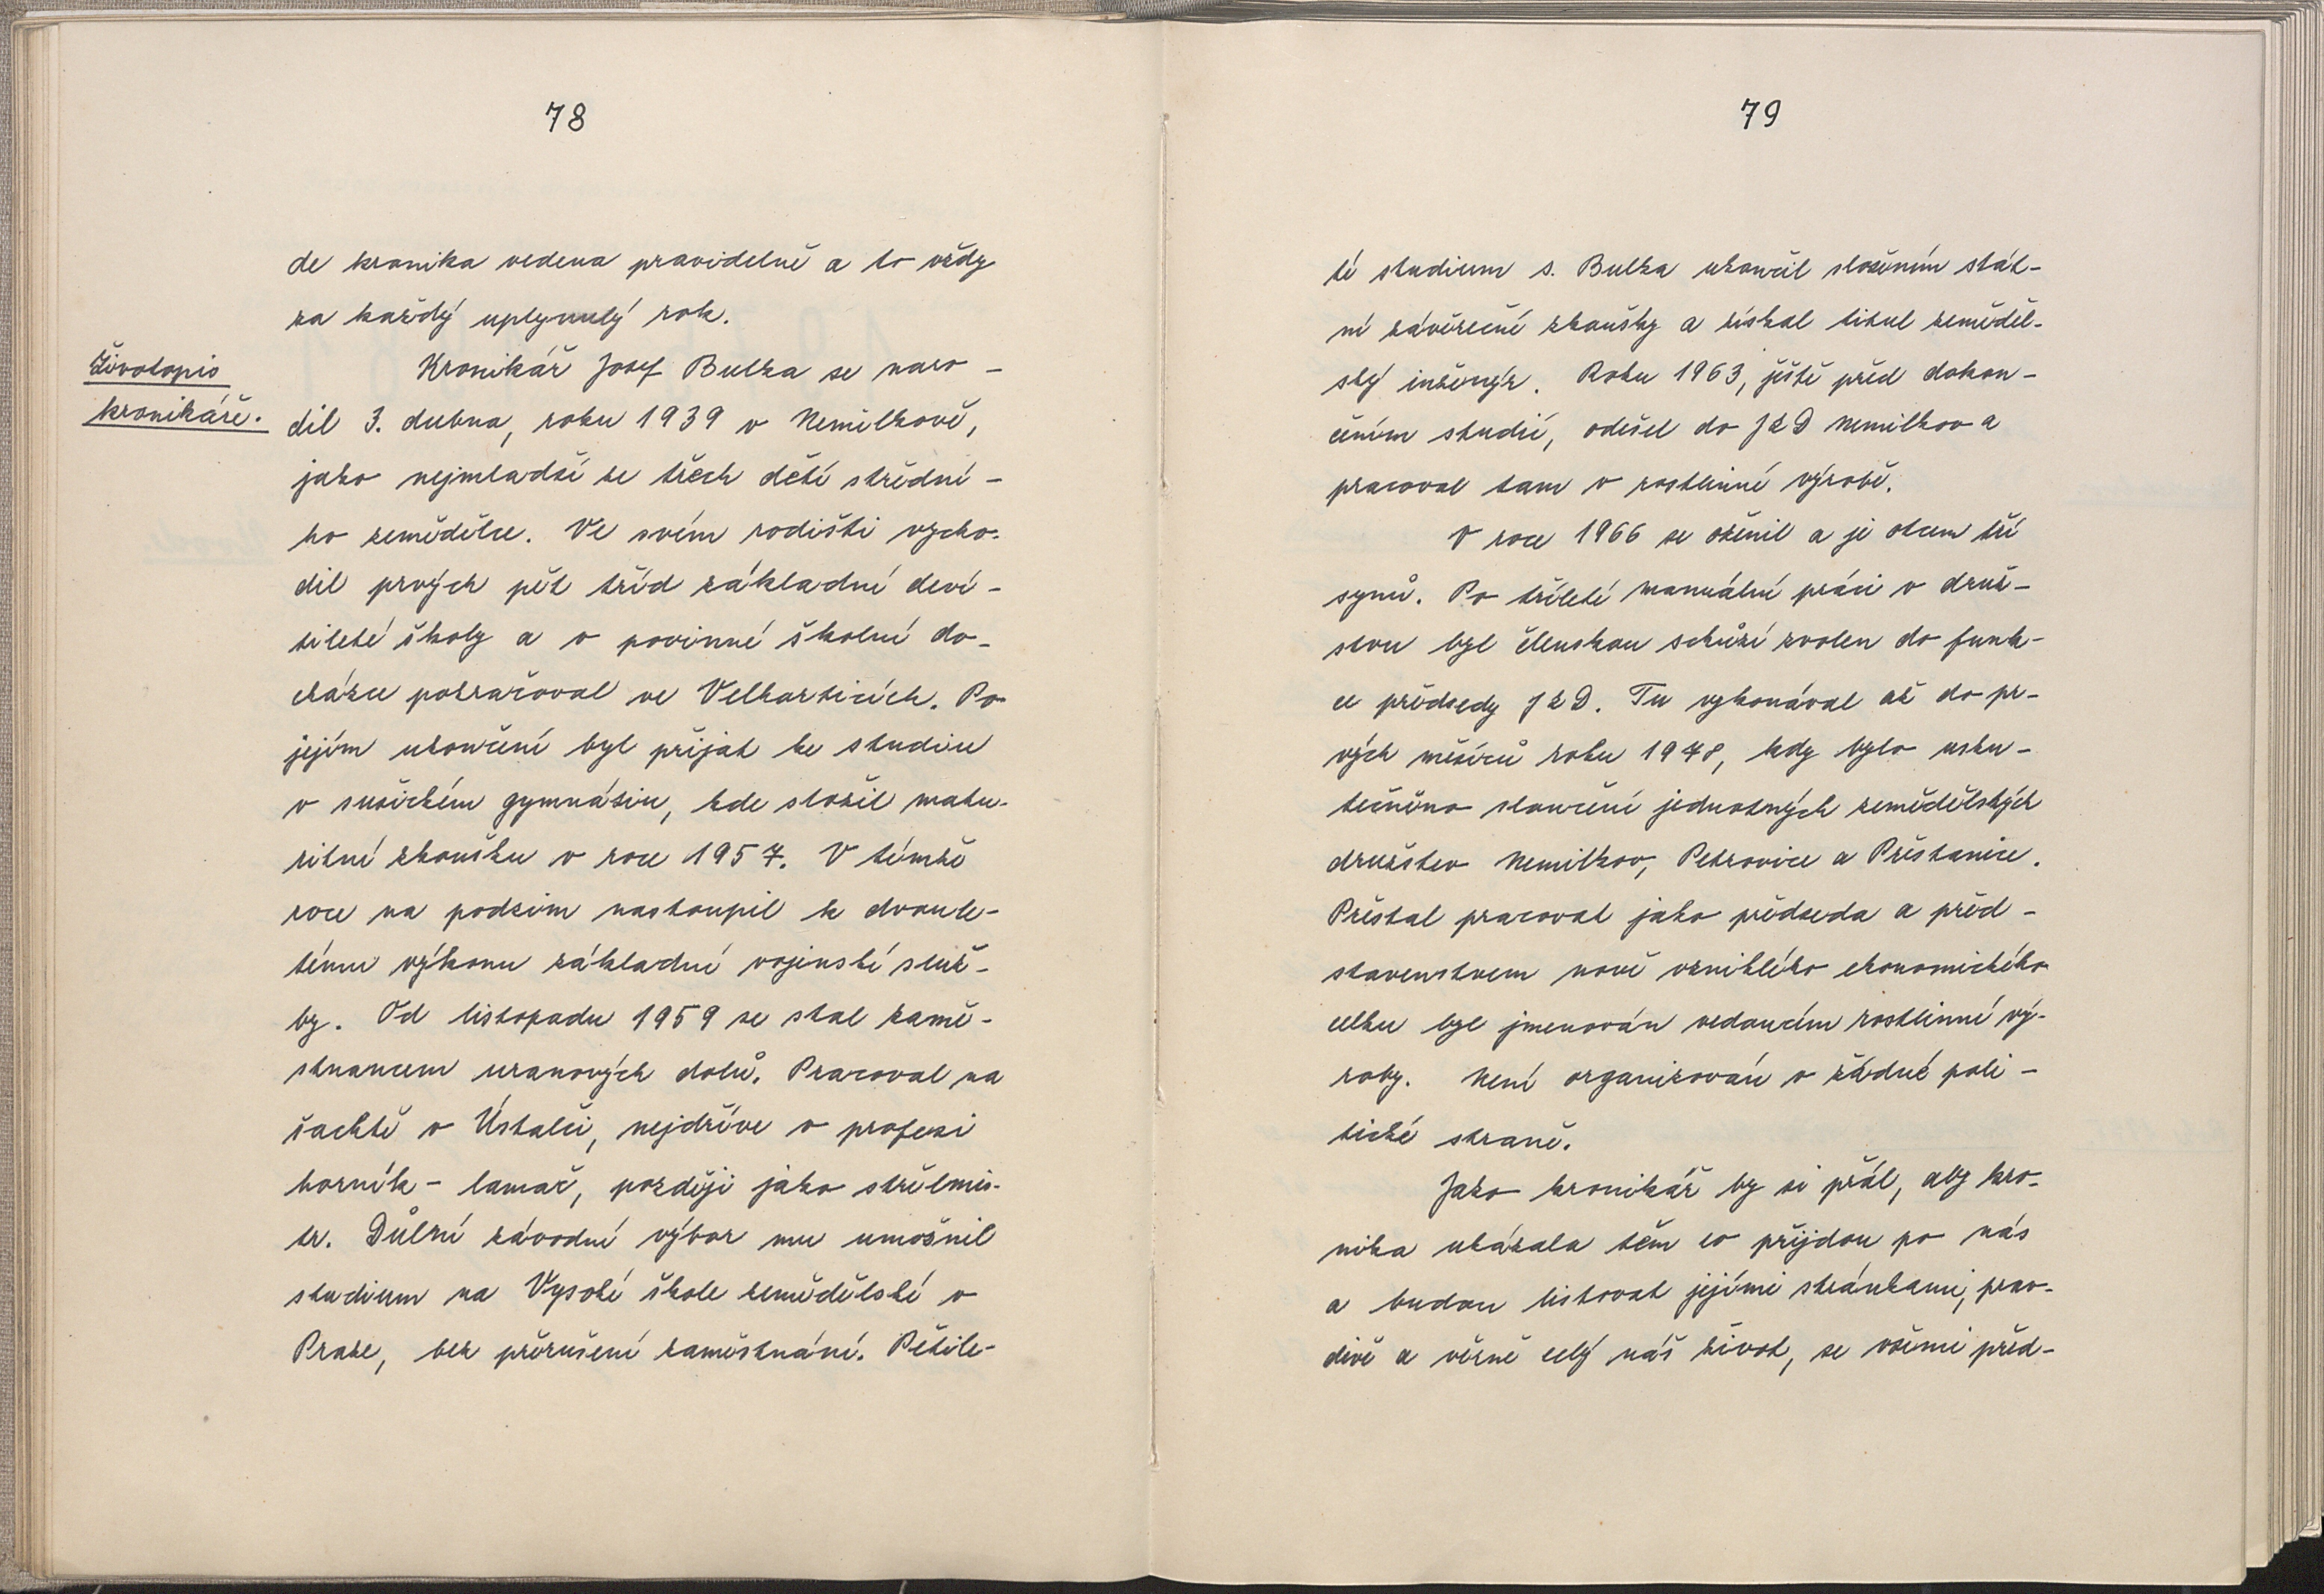 78
de kronika vedena pravidelně a to vždy
za každý uplynulý rok.
Životopis
kronikáře.
Kronikář Josef Bulka se naro-
dil 3. dubna, roku 1939 v Nemilkově,
jako nejmladší ze třech dětí střední-
ho zemědělce. Ve svém rodišti vycho-
dil prvých pět tříd základní deví-
tileté školy a v povinné školní do-
cházce pokračoval ve Velharticích. Po
jejím ukončení byl přijat ke studiu
v sušickém gymnáziu, kde složil matu-
ritní zkoušku v roce 1957. V témže
roce na podzim nastoupil k dvoule-
tému výkonu základní vojenské služ-
by. Od listopadu 1959 se stal zamě-
stnancem uranových dolů. Pracoval na
šachtě v Ústalči, nejdříve v profesi
horník - lamač, později jako střelmis-
tr. Důlní závodní výbor mu umožnil
studium na Vysoké škole zemědělské v
Praze, bez přerušení zaměstnání. Pětile-
79
té studium s. Bulka ukončil složením stát-
ní závěrečné zkoušky a získal titul zeměděl-
ský inženýr. Roku 1963, ještě před dokon-
čením studií, odešel do JZD Nemilkov a
pracoval tam v rostlinné výrobě.
V roce 1966 se oženil a je otcem tří
synů. Po tříleté manuální práci v druž-
stvu byl členskou schůzí zvolen do funk-
ce předsedy JZD. Tu vykonával až do pr-
vých měsíců roku 1978, kdy bylo usku-
tečněno sloučení jednotných zemědělských
družstev Nemilkov, Petrovice a Přestanice.
Přestal pracovat jako předseda a před-
stavenstvem nově vzniklého ekonomického
celku byl jmenován vedoucím rostlinné vý-
roby. Není organizován v žádné poli-
tické straně.
Jako kronikář by si přál, aby kro-
nika ukázala těm co přijdou po nás
a budou listovat jejími stránkami, prav-
divě a věrně celý náš život, se všemi před-